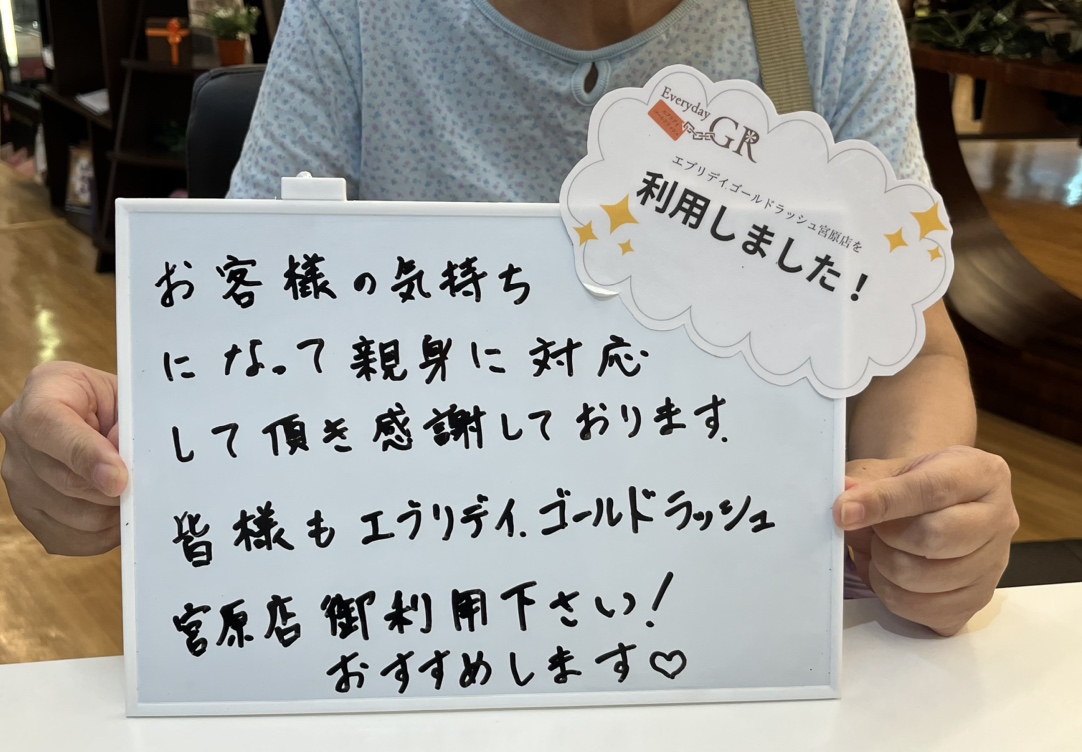 Everyday
GR
エブリデイゴールドラッシュ宮原店を
利用しました！
お客様の気持ち
になって親身に対応
して頂き感謝しております。
皆様もエブリデイ.ゴールドラッシュ
宮原店御利用下さい！
おすすめします♡